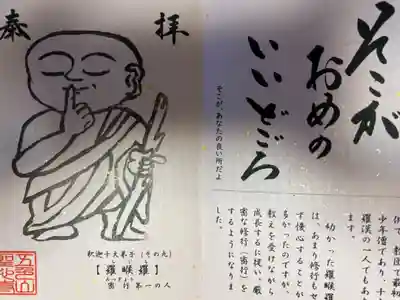 奉拝
釈迦十大弟子(その九)
【羅睺羅】
密行第一の人
そこが
おめの
いいどごろ
そこが、あなたの良い所だよ
少年僧でもあり、十
羅漢の一人でもあ
ます。
幼かった羅睺羅
は、あまり修行も
ず慢心することが
多かったのですが、
教えを受けながら
成長するに従い、厳
密な修行(密行)を
するようになりま
した。